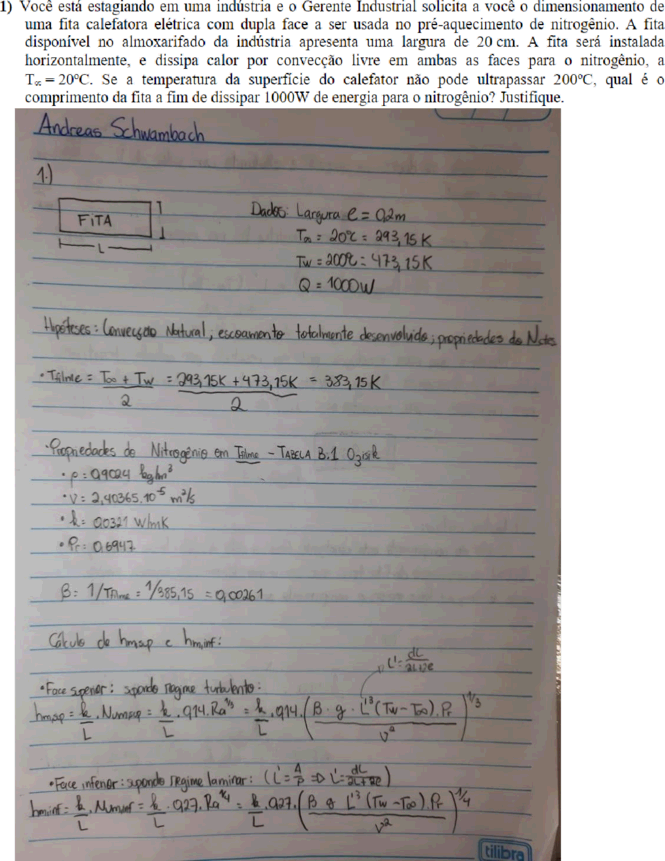 1) Você está estagiando em uma indústria e o Gerente Industrial solicita a você o dimensionamento de
uma fita calefatora elétrica com dupla face a ser usada no pré-aquecimento de nitrogênio. A fita
disponível no almoxarifado da indústria apresenta uma largura de 20 cm. A fita será instalada
horizontalmente, e dissipa calor por convecção livre em ambas as faces para o nitrogênio, a
T∞ = 20°C. Se a temperatura da superfície do calefator não pode ultrapassar 200°C, qual é o
comprimento da fita a fim de dissipar 1000W de energia para o nitrogênio? Justifique.
Andreas Schwambach
1.)
FITA
L
Dados: Largura l = 0,2m
T∞ = 20°C = 293,15K
Tw = 200°C = 473,15K
Q = 1000W
Hipóteses: Convecção Natural; escoamento totalmente desenvolvido; propriedades do
• Tfilme = T∞ + Tw / 2 = 293,15K + 473,15K / 2 = 383,15K
• Propriedades do Nitrogênio em Tfilme - TABELA B.1 Ozisik
• ρ = 0,9024 kg/m³
• ν = 2,40365.10⁻⁵ m²/s
• k = 0,0321 W/mK
• Pr = 0,6947
β = 1/Tfilme = 1/385,15 = 0,00261
Cálculo do hmsup e hminf:
• Face superior: supondo regime turbulento:
hmsup = k/L . Numsup = k/L . 0,14 . Ra^1/3 = k/L . 0,14 . (β . g . L'³ (Tw - T∞) . Pr / ν²)^1/3
• Face inferior: supondo regime laminar: (L' = A/P => L' =
hminf = k/L . Numinf = k/L . 0,27 . Ra^1/4 = k/L . 0,27 . (β g L'³ (Tw - T∞) . Pr / ν²)^1/4
tilibra